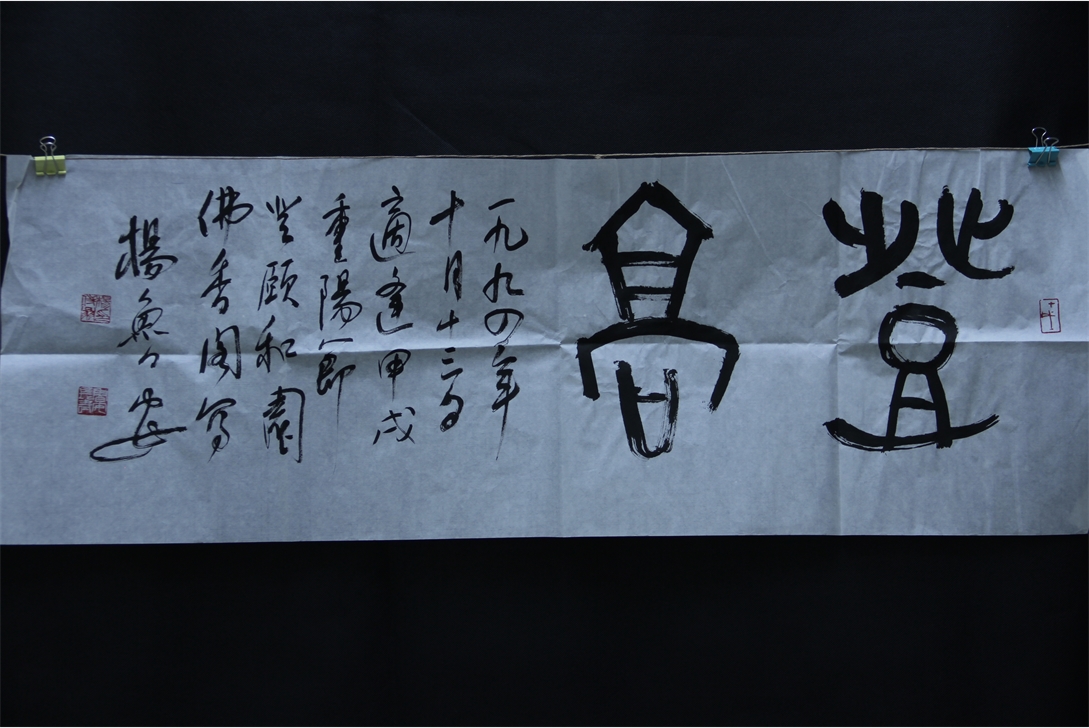 登高
一九九四年
十月十三日
適逢甲戌
重陽節
登頤和園
佛香閣寫
楊魯安